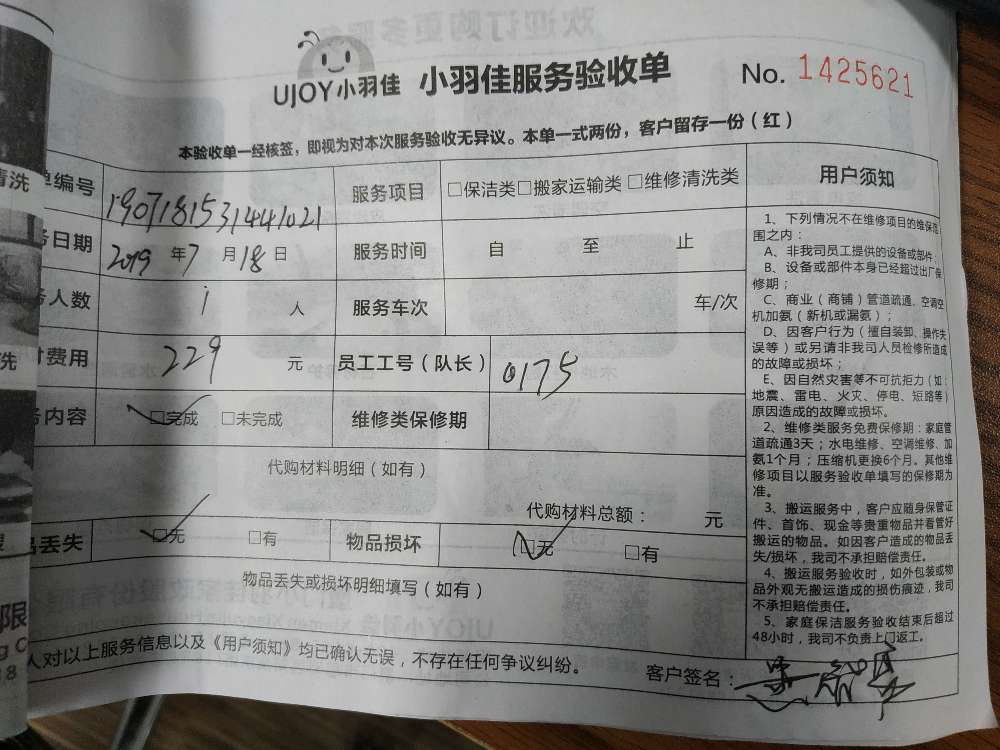 UJOY小羽佳 小羽佳服务验收单 No. 1425621
本验收单一经核签，即视为对本次服务验收无异议。本单一式两份，客户留存一份（红）
单编号 1907181531441021 服务项目 □保洁类□搬家运输类□维修清洗类
务日期 2019 年 7 月 18 日 服务时间 自 至 止
务人数 1 人 服务车次 车/次
付费用 229 元 员工工号（队长） 0175
务内容 □完成 □未完成 维修类保修期
代购材料明细（如有）
代购材料总额： 元
品丢失 □无 □有 物品损坏 □无 □有
物品丢失或损坏明细填写（如有）
人对以上服务信息以及《用户须知》均已确认无误，不存在任何争议纠纷。
客户签名：
用户须知
1、下列情况不在维修项目的维保范
围之内：
A、非我司员工提供的设备或部件
B、设备或部件本身已经超过出厂保
修期；
C、商业（商铺）管道疏通，空调空
机加氨（新机或漏氨）；
D、因客户行为（擅自装卸、操作失
误等）或另请非我司人员检修所造成
的故障或损坏；
E、因自然灾害等不可抗拒力（如：
地震、雷电、火灾、停电、短路等）
原因造成的故障或损坏。
2、维修类服务免费保修期：家庭管
道疏通3天；水电维修、空调维修、加
氨1个月；压缩机更换6个月。其他维
修项目以服务验收单填写的保修期为
准。
3、搬运服务中，客户应随身保管证
件、首饰、现金等贵重物品并看管好
搬运的物品。如因客户造成的物品丢
失/损坏，我司不承担赔偿责任。
4、搬运服务验收时，如外包装或物
品外观无搬运造成的损伤痕迹，我司
不承担赔偿责任。
5、家庭保洁服务验收结束后超过
48小时，我司不负责上门返工。
清洗
洗
限